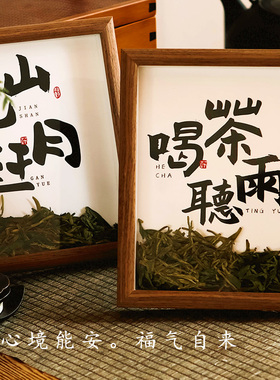 山
JIAN
SHAN
月
GAN
YUE
喝茶
HE
CHA
聽雨
TING YU
心境能安。福气自来